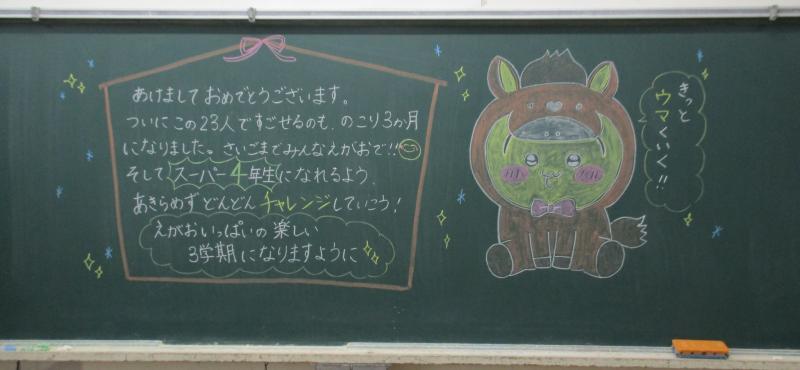 あけましておめでとうございます。
ついにこの23人ですごせるのも、のこり3か月
になりました。さいごまでみんなえがおで!!
そして スーパー4年生になれるよう、
あきらめずどんどんチャレンジしていこう!
えがおいっぱいの楽しい
3学期になりますように
きっと
ウマ
くいく!!